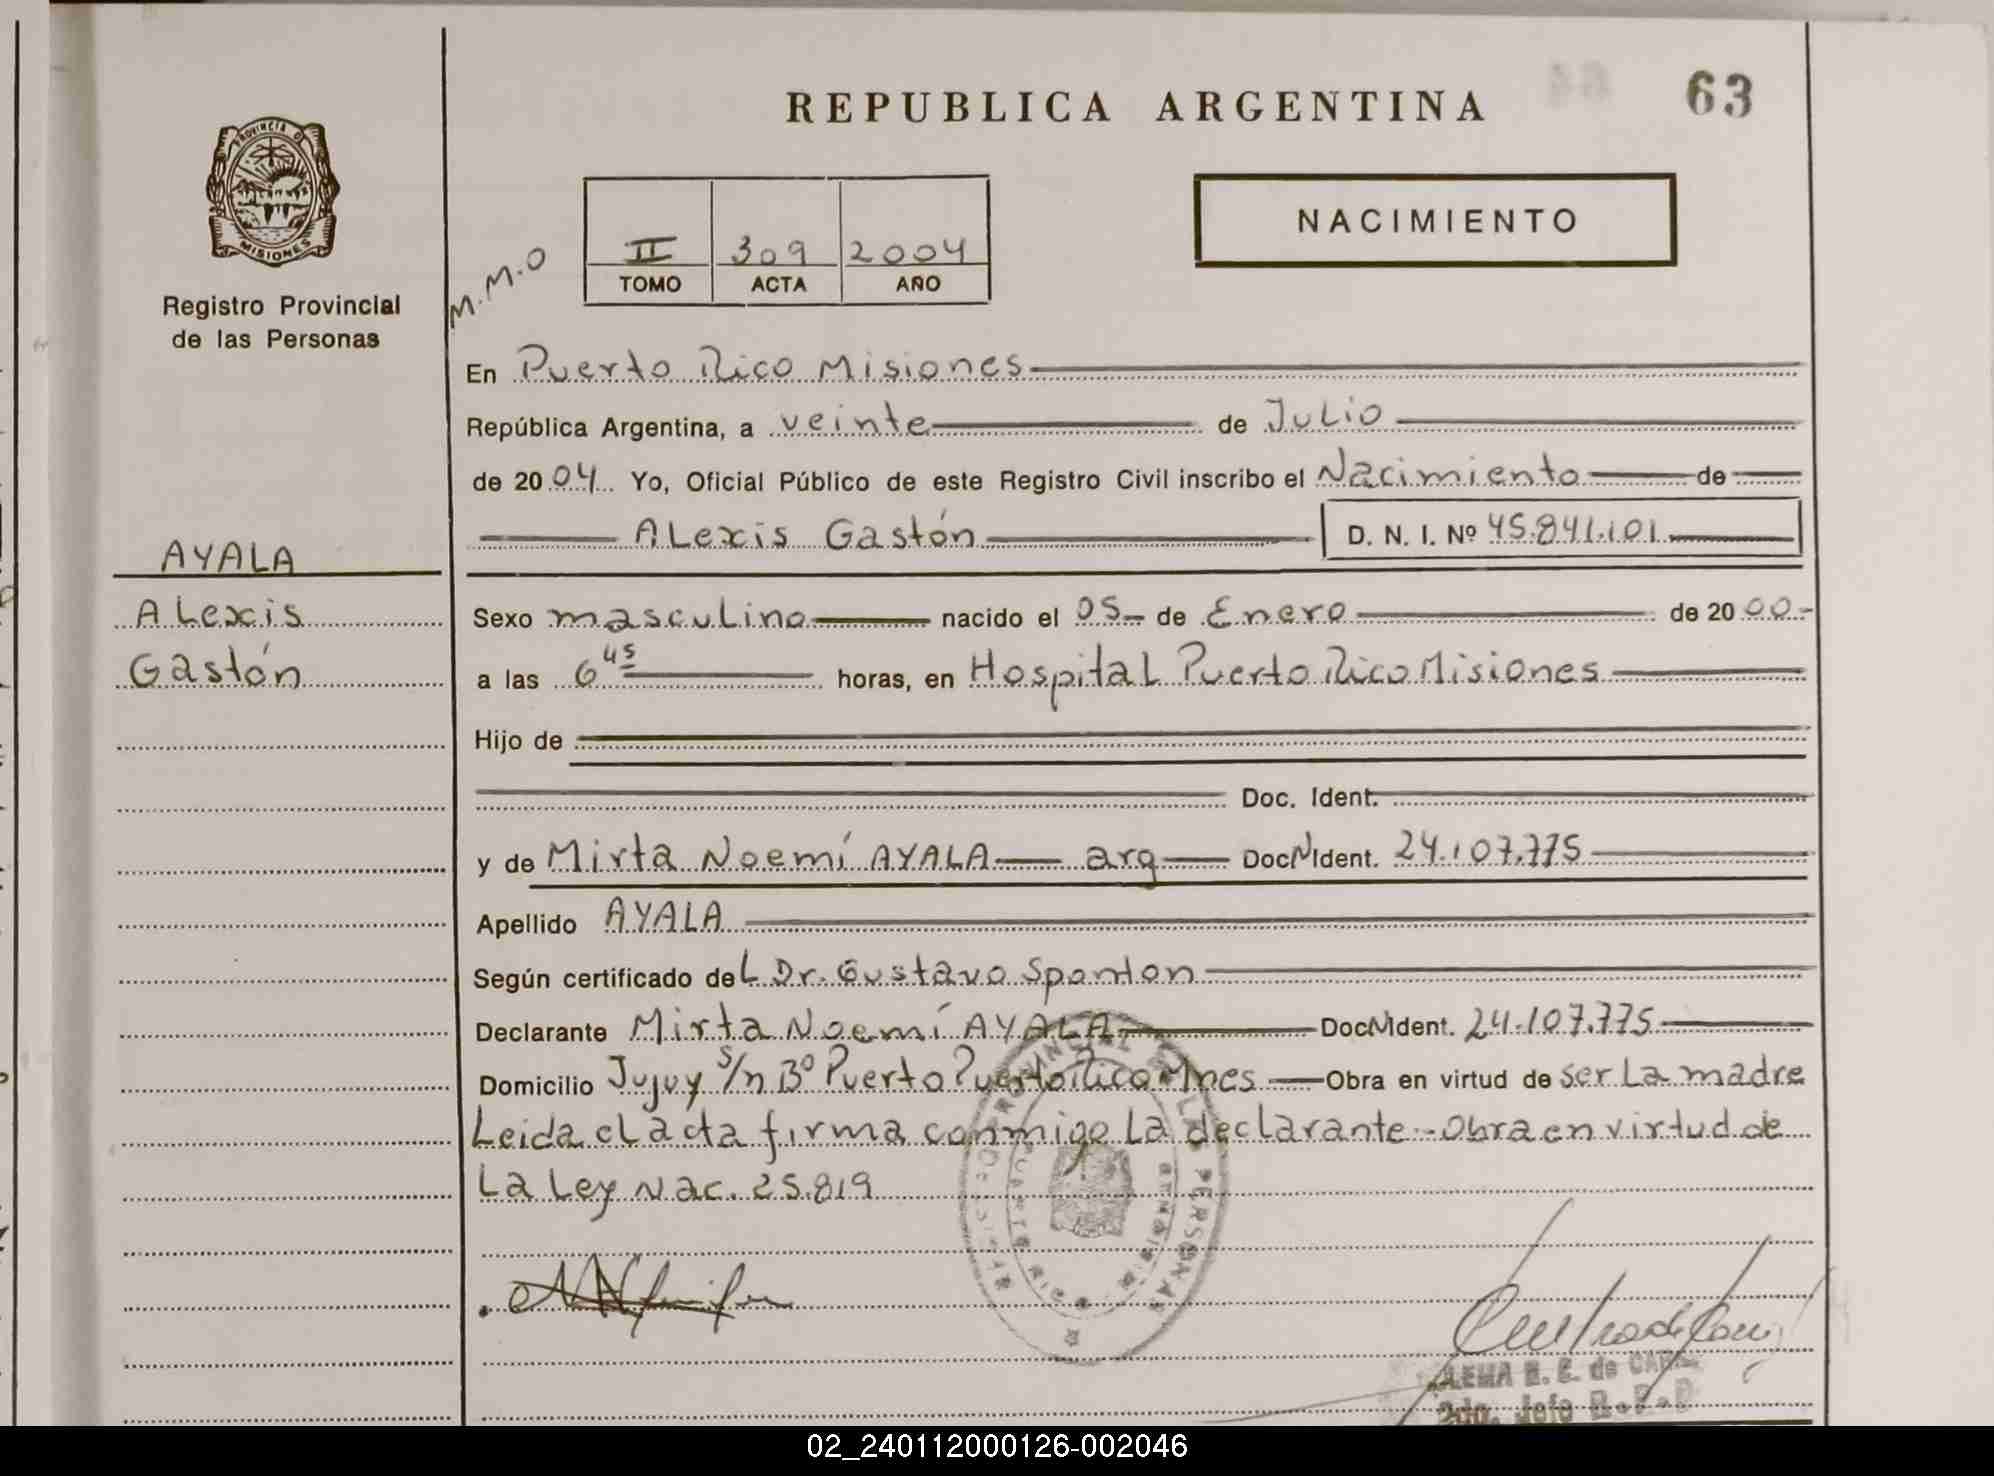 REPUBLICA ARGENTINA
63
PROVINCIA D
MISIONES
Registro Provincial
de las Personas
M.M.O
II 309 2004
TOMO ACTA AÑO
NACIMIENTO
En Puerto Rico Misiones
República Argentina, a veinte de Julio
de 2004 Yo, Oficial Público de este Registro Civil inscribo el Nacimiento de
Alexis Gastón D. N. I. Nº 45.841.101
AYALA
Alexis
Gastón
Sexo masculino nacido el 05 de Enero de 2000
a las 6 45 horas, en Hospital Puerto Rico Misiones
Hijo de
Doc. Ident.
y de Mirta Noemí AYALA arg Doc N Ident. 24.107.775
Apellido AYALA
Según certificado del Dr. Gustavo Sponton
Declarante Mirta Noemí AYALA Doc N Ident. 24.107.775
Domicilio Jujuy s/n Bº Puerto Puerto Rico Mnes Obra en virtud de ser la madre
Leida el acta firma conmigo la declarante - Obra en virtud de
La Ley Nac. 25.819
PROVINCIAL LAS PERSONAS
PUERTO RICO
B. E. de
2do. Jefe R.P.P
02_240112000126-002046